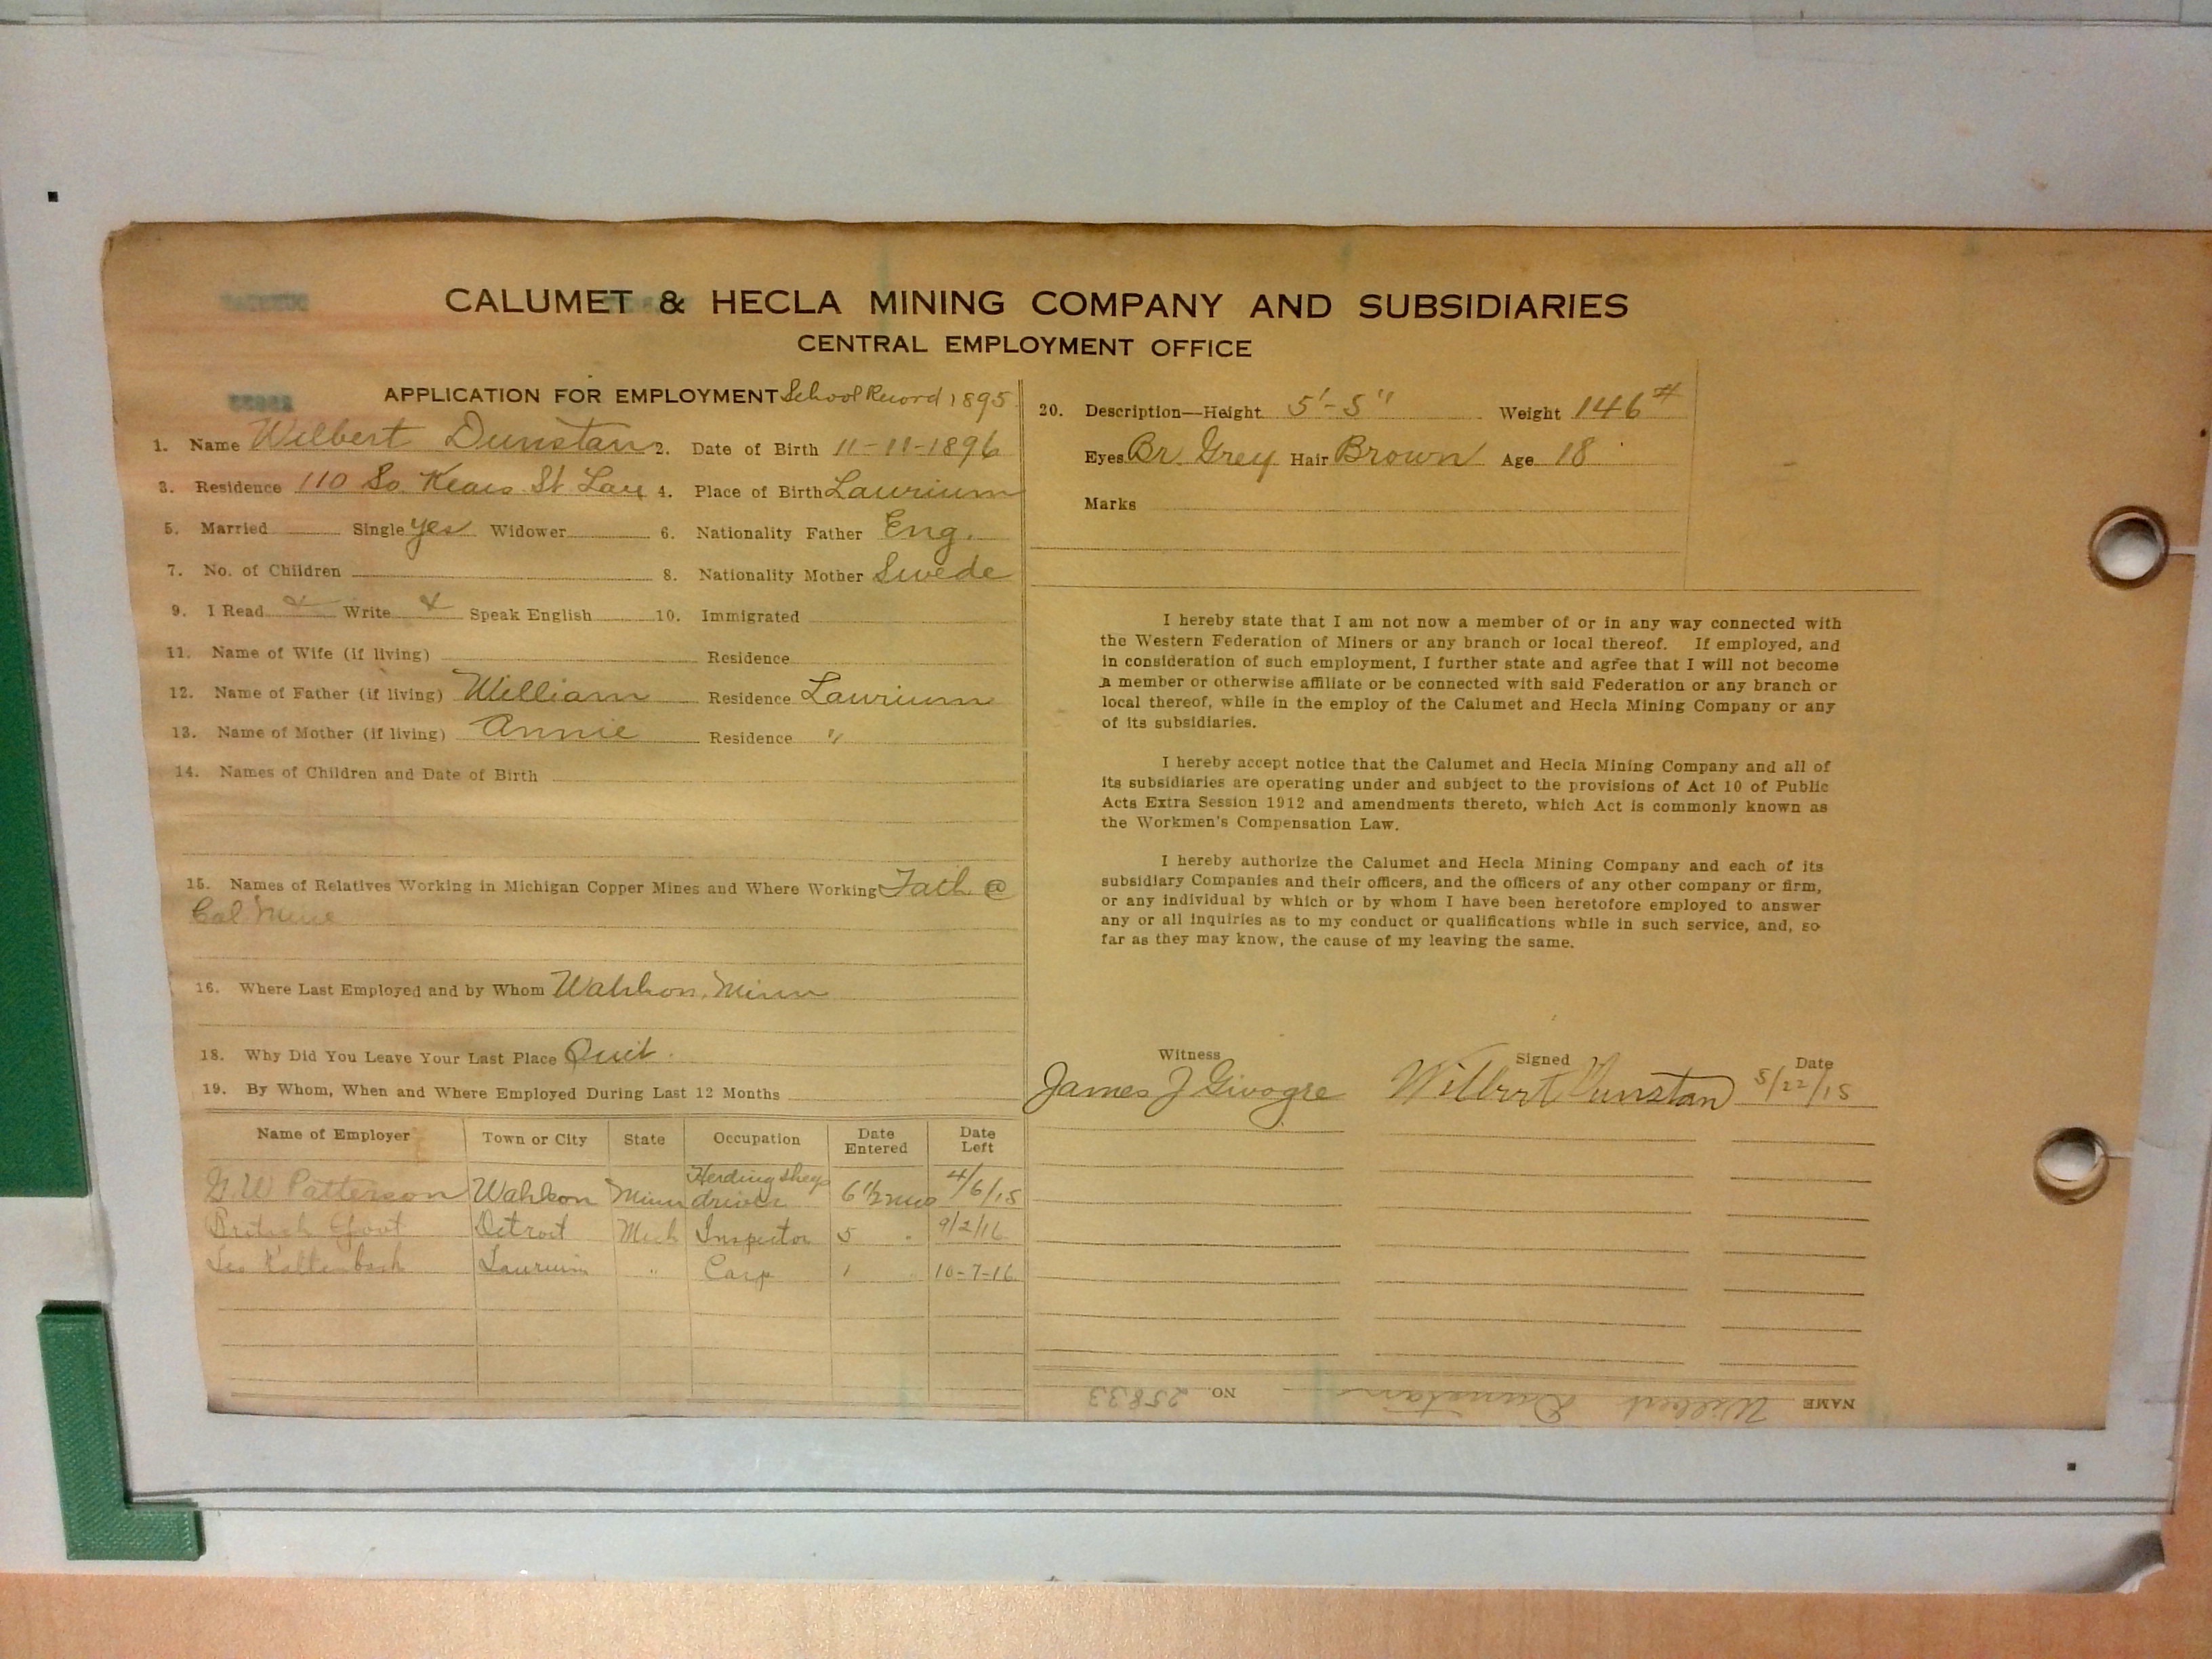 CALUMET & HECLA MINING COMPANY AND SUBSIDIARIES
CENTRAL EMPLOYMENT OFFICE
APPLICATION FOR EMPLOYMENT School Record 1895
1. Name Wilbert Dunstan 2. Date of Birth 11-11-1896
3. Residence 110 So. Kears St Lau 4. Place of Birth Laurium
5. Married Single yes Widower 6. Nationality Father Eng.
7. No. of Children 8. Nationality Mother Swede
9. I Read Write Speak English 10. Immigrated
11. Name of Wife (if living) Residence
12. Name of Father (if living) William Residence Laurium
13. Name of Mother (if living) Annie Residence "
14. Names of Children and Date of Birth
15. Names of Relatives Working in Michigan Copper Mines and Where Working Fath @
Cal Mine
16. Where Last Employed and by Whom Wahkon, Minn
18. Why Did You Leave Your Last Place Quit.
19. By Whom, When and Where Employed During Last 12 Months
Name of Employer Town or City State Occupation Date Entered Date Left
G. W. Patterson Wahkon Minn Herding sheep driver 6 1/2 mos 4/6/15
British Govt Detroit Mich Inspector 5 " 9/2/16
Leo Kaltenbach Laurium " Carp 1 " 10-7-16
20. Description—Height 5'-5" Weight 146#
Eyes Br. Grey Hair Brown Age 18
Marks
I hereby state that I am not now a member of or in any way connected with
the Western Federation of Miners or any branch or local thereof. If employed, and
in consideration of such employment, I further state and agree that I will not become
a member or otherwise affiliate or be connected with said Federation or any branch or
local thereof, while in the employ of the Calumet and Hecla Mining Company or any
of its subsidiaries.
I hereby accept notice that the Calumet and Hecla Mining Company and all of
its subsidiaries are operating under and subject to the provisions of Act 10 of Public
Acts Extra Session 1912 and amendments thereto, which Act is commonly known as
the Workmen's Compensation Law.
I hereby authorize the Calumet and Hecla Mining Company and each of its
subsidiary Companies and their officers, and the officers of any other company or firm,
or any individual by which or by whom I have been heretofore employed to answer
any or all inquiries as to my conduct or qualifications while in such service, and, so
far as they may know, the cause of my leaving the same.
Witness Signed Date
James J Givogre Wilbert Dunstan 5/22/15
NAME Wilbert Dunstan NO. 25833